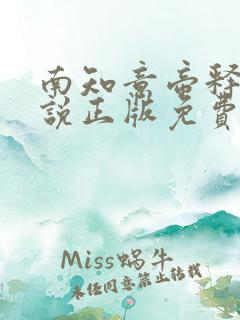 南知意帝释
说正版免费
Miss蜗牛
未经同意禁止转载